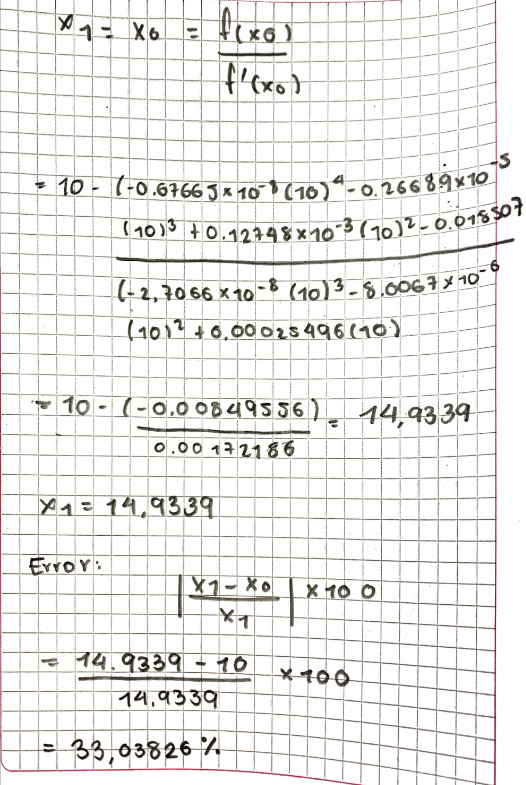 x1 = x0 = f(x0) / f'(x0)
= 10 - (-0.67665x10^-8 (10)^4 - 0.26689x10^-5
(10)^3 + 0.12748x10^-3 (10)^2 - 0.018507
(-2,7066x10^-8 (10)^3 - 8.0067x10^-6
(10)^2 + 0.00025496(10)
= 10 - (-0.00849556) / 0.00172186 = 14,9339
x1 = 14,9339
Error:
|x1 - x0 / x1| x 100
= 14.9339 - 10 / 14,9339 x 100
= 33,03826 %